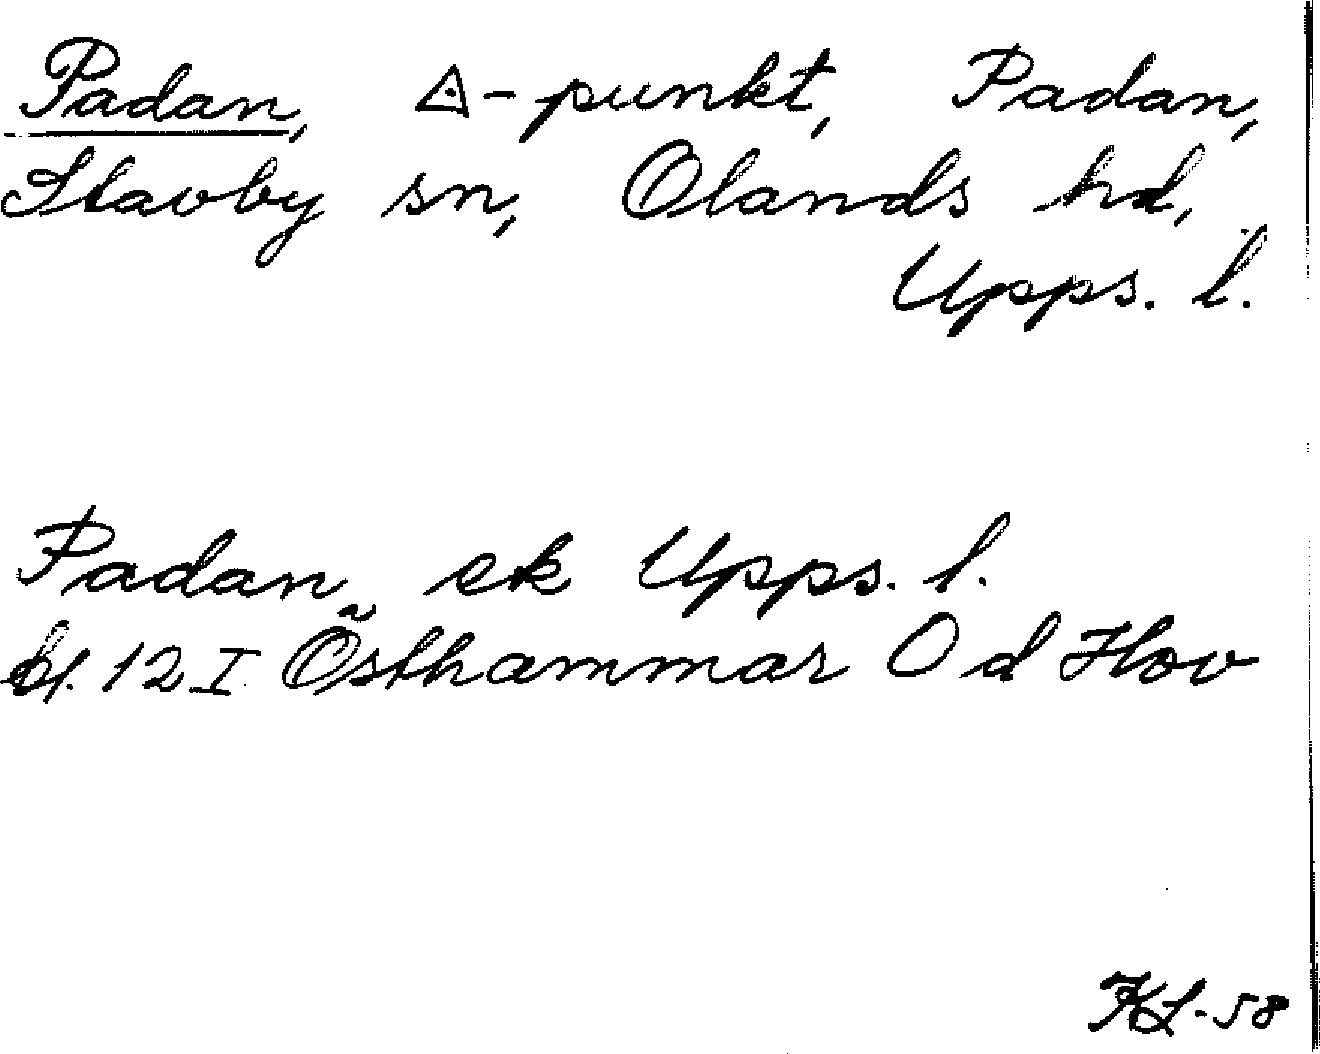 Padan, △-punkt, Padan,
Stavby sn, Olands hd,
Upps. l.
Padan ek Upps. l.
bl. 12 I Östhammar O d Hov
KL-58